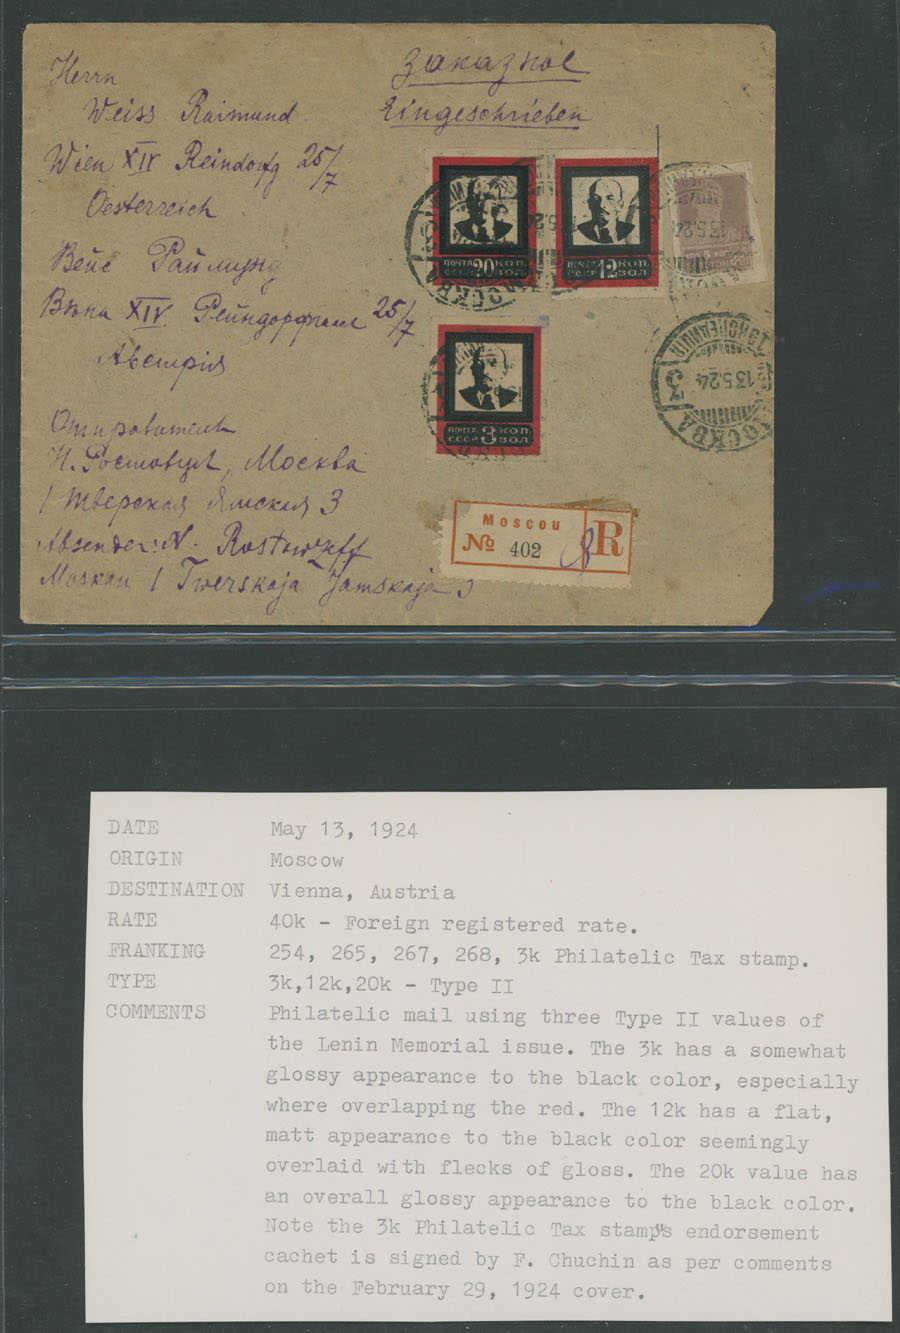 Herrn
Weiss Raimund
Wien XIV Reindorfg 25/7
Oesterreich
Заказное
Eingeschrieben
Вейс Раймунд
Вѣна XIV Рейндорфгасс 25/7
Австрія
Отправитель
Н. Ростовцев, Москва
1 Тверская Ямская 3
Absender: N. Rostowzeff
Moskau 1 Twerskaja Jamskaja 3
ПОЧТА 20 КОП.
СССР ЗОЛ.
ПОЧТА 12 КОП.
СССР ЗОЛ.
ПОЧТА 3 КОП.
СССР ЗОЛ.
МОСКВА
13.5.24
МОСКВА
13.5.24
3
ЭКСПЕДИЦІЯ
Moscou
№ 402
R
DATE May 13, 1924
ORIGIN Moscow
DESTINATION Vienna, Austria
RATE 40k - Foreign registered rate.
FRANKING 254, 265, 267, 268, 3k Philatelic Tax stamp.
TYPE 3k,12k,20k - Type II
COMMENTS Philatelic mail using three Type II values of
the Lenin Memorial issue. The 3k has a somewhat
glossy appearance to the black color, especially
where overlapping the red. The 12k has a flat,
matt appearance to the black color seemingly
overlaid with flecks of gloss. The 20k value has
an overall glossy appearance to the black color.
Note the 3k Philatelic Tax stamp's endorsement
cachet is signed by F. Chuchin as per comments
on the February 29, 1924 cover.